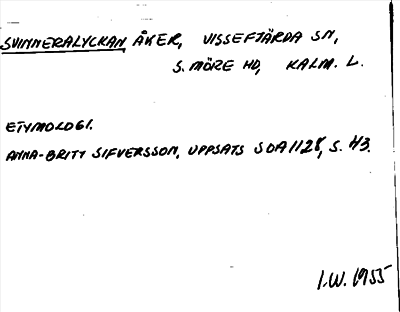 SVINNERALYCKAN, ÅKER, VISSEFJÄRDA SN,
S. MÖRE HD, KALM. L.
ETYMOLOGI.
ANNA-BRITT SIFVERSSON, UPPSATS SOA 1128, S. 43.
I.W. 1955